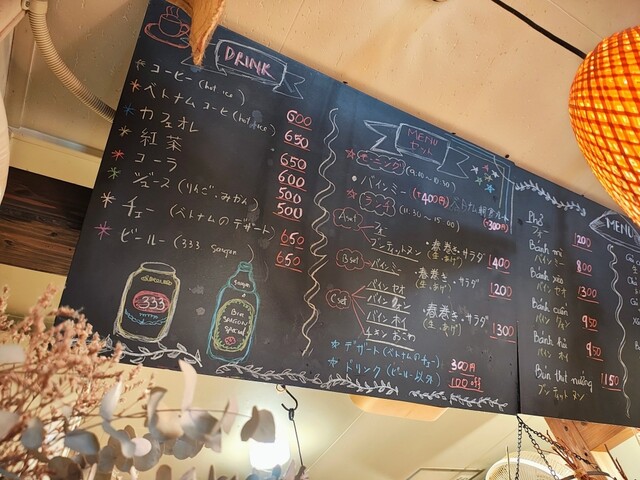 DRINK
* コーヒー (hot ice) 600
* ベトナムコーヒー (hot ice) 650
* カフェオレ 650
* 紅茶 600
* コーラ 500
* ジュース (りんご・みかん) 500
* チェー (ベトナムのデザート) 650
* ビール (333 saigon) 650
333
saigon
BIA
SAIGON
SPECIAL
MENU
セット
モーニング (9:30〜10:30)
• バインミー (+400円)
ランチ (11:30〜15:00)
A set
フォー
ブンティットヌン
・春巻き・サラダ
(生・あげ)
1400
B set
バインミー
・春巻き・サラダ
(生・あげ)
1200
C set
バインセオ
バインクォン
バインボイ
チキンおこわ
春巻き・サラダ
(生・あげ)
1300
* デザート (ベトナムのチェー) 300円
* ドリンク (ビール以外) 100
Phở
フォー
1200
Bánh mì
バインミー
800
Bánh xèo
バインセオ
1300
Bánh cuốn
バインクォン
950
950
Bún thịt nướng
ブンティットヌン
1150
MENU